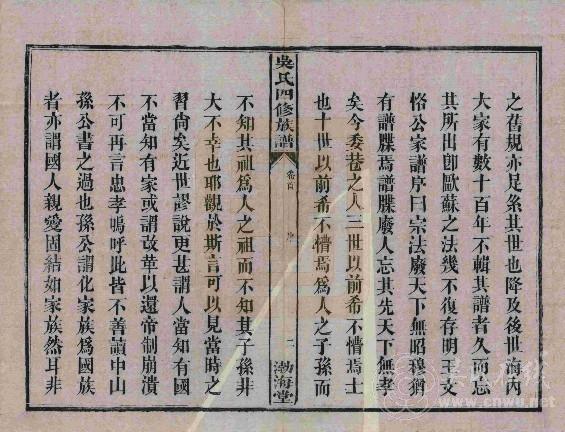 之舊規亦足糸其世也降及後世海內
大家有數十百年不輯其譜者久而忘
其所出卽歐蘇之法幾不復存明王文
恪公家譜序曰宗法廢天下無昭穆猶
有譜牒焉譜牒廢人忘其先天下無孝
矣今委巷之人三世以前希不懵焉士
也十世以前希不懵焉爲人之子孫而
吳氏四修族譜
卷首
序
二
渤海堂
不知其祖爲人之祖而不知其子孫非
大不幸也耶觀於斯言可以見當時之
習尙矣近世謬說更甚謂人當知有國
不當知有家或謂改革以還帝制崩潰
不可再言忠孝嗚呼此皆不善讀中山
孫公書之過也孫公謂化家族爲國族
者亦謂國人親愛固結如家族然耳非
www.cnwu.net